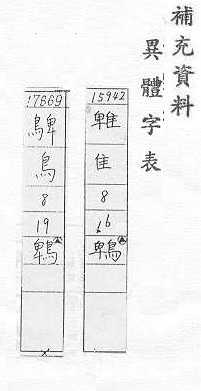 補充資料
異體字表
15942
隹
8
16
鵯
17669
鳥
8
19
鵯